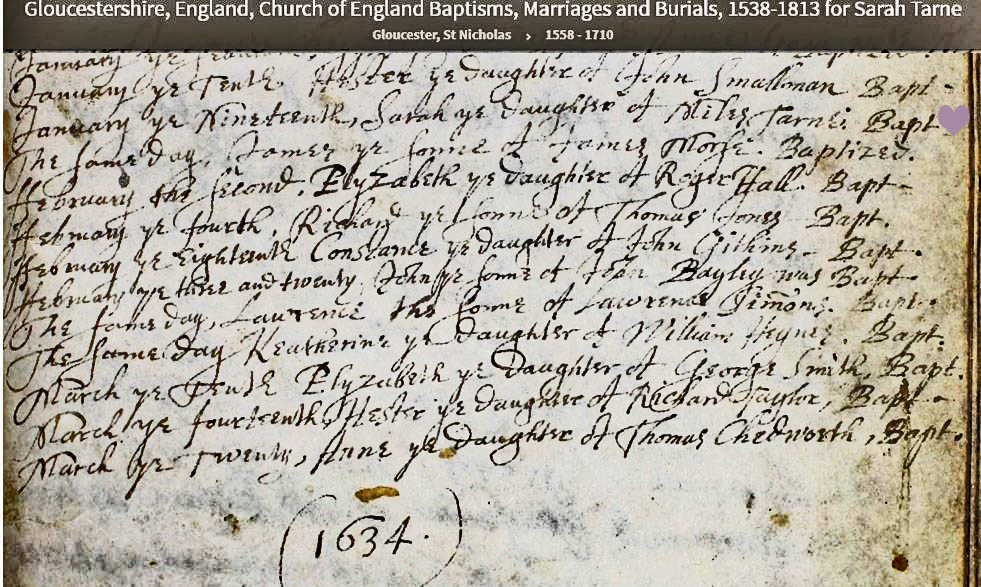 Gloucestershire, England, Church of England Baptisms, Marriages and Burials, 1538-1813 for Sarah Tarne
Gloucester, St Nicholas › 1558 - 1710
January ye
January ye Tenth. Hester ye daughter of John Smallman Bapt -
January ye Nineteenth, Sarah ye daughter of Miles Tarne: Bapt
The same day, James ye sonne of James Morse. Baptized.
February the second. Elyzabeth ye daughter of Roger Hall. Bapt -
February ye fourth, Richard ye sonne of Thomas Jones Bapt.
February ye Eighteenth Constance ye daughter of John Bapt.
February ye three and twenty, John ye sonne of John Bayly was Bapt.
The same day, Lawrence the sonne of Lawrence Simons. Bapt.
The same day Keatherine ye daughter of William Heynes. Bapt.
March ye Tenth Elyzabeth ye Daughter of George Smith, Bapt.
March ye fourteenth, Hester ye daughter of Richard Taylor, Bapt -
March ye Twenty, Anne ye Daughter of Thomas Chedworth, Bapt.
(1634.)